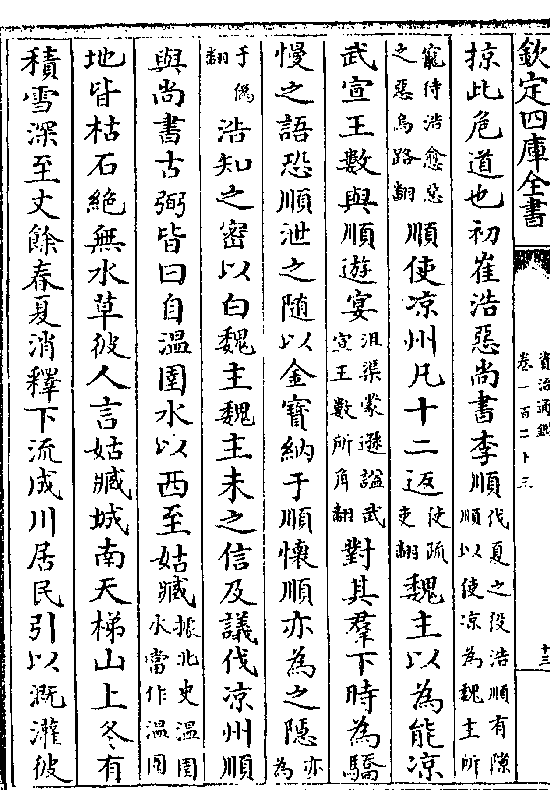 欽定四庫全書
資治通鑑
卷一百二十三
十三
掠此危道也初崔浩惡尚書李順伐夏之役浩順有隙順以使凉為魏主所
寵待浩愈惡之惡烏路翻順使凉州凡十二返使疏吏翻魏主以為能凉
武宣王數與順遊宴沮渠蒙遜諡武宣王數所角翻對其羣下時為驕
慢之語恐順泄之随以金寳納于順懷順亦為之隱亦為
于偽翻浩知之密以白魏主魏主未之信及議伐凉州順
與尚書古弼皆曰自溫圉水以西至姑臧据北史溫圉水當作溫圄
地皆枯石絶無水草彼人言姑臧城南天梯山上冬有
積雪深至丈餘春夏消釋下流成川居民引以溉灌彼